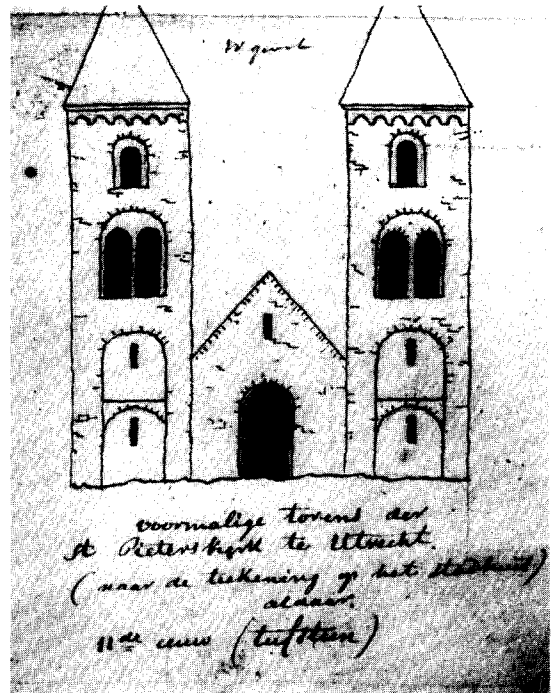 W gevel
voormalige torens der
St Pieterskerk te Utrecht.
(naar de teekening op het stadhuis)
aldaar.
11de eeuw (tufsteen)